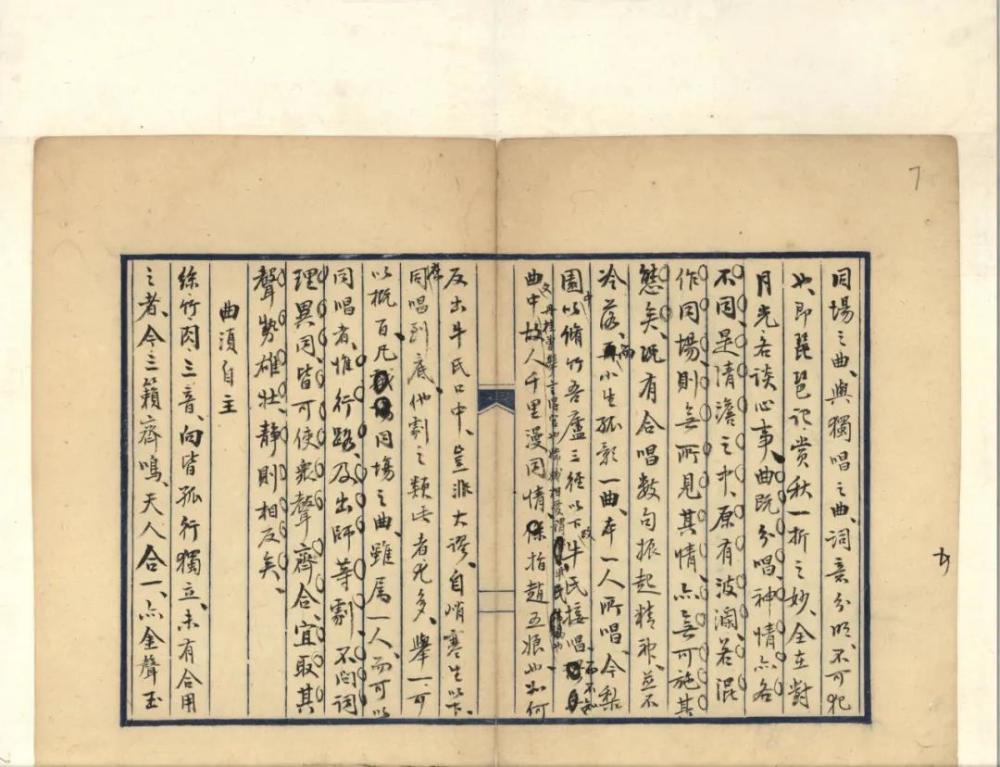 7
同場之曲、與獨唱之曲、詞意分明、不可犯
也、即琵琶記、賞秋一折之妙、全在對
月光各談心事、曲既分唱、神情亦各
不同、是清澹之中、原有波瀾、若混
作同場、則無所見其情、亦無可施其
態矣、既有合唱數句振起精神、並不
冷落、而小生孤影一曲、本一人所唱、今梨
園中以脩竹吾廬三徑以下、改牛氏接唱、而不知
曲中故人千里漫同情、係指趙五娘也、如何
反出牛氏口中、豈非大謬、自峭寒生以下、
同唱到底、他劇之類此者尤多、舉一可
以概百、凡同塲之曲、雖屬一人、而可以
同唱者、惟行路、及出師等劇、不问詞
理異同、皆可使衆聲齊合、宜取其
聲勢雄壯、静則相反矣、
曲須自主
絲竹肉三音、向皆孤行獨立、未有合用
之者、今三籟齊鳴、天人合一、亦金聲玉